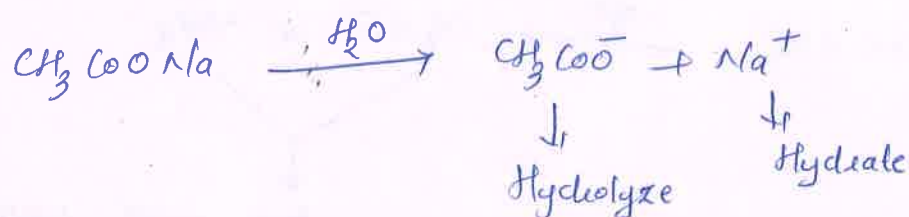 CH₃COONa H₂O→ CH₃COO⁻ + Na⁺
↓ ↓
Hydrolyze Hydrate